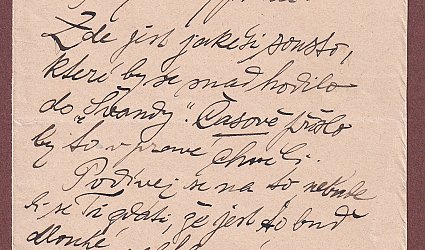 Zde jest jakési sousto,
které by se snad hodilo
do „Švandy“. Časově přišlo
by to v pravé chvíli.
Podívej se na to, nebude
li se Ti zdáti, že jest to buď
dlouhé